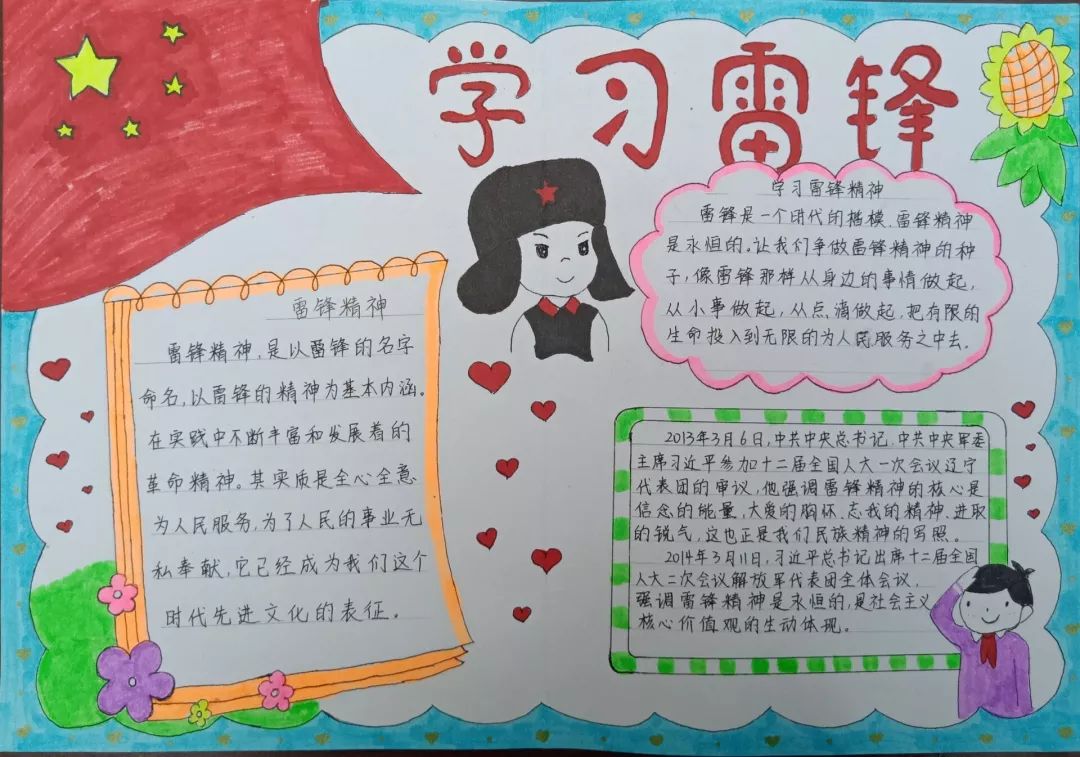 学习雷锋
学习雷锋精神
雷锋是一个时代的楷模.雷锋精神
是永恒的.让我们争做雷锋精神的种
子,像雷锋那样从身边的事情做起,
从小事做起,从点滴做起.把有限的
生命投入到无限的为人民服务之中去.
雷锋精神
雷锋精神,是以雷锋的名字
命名,以雷锋的精神为基本内涵。
在实践中不断丰富和发展着的
革命精神。其实质是全心全意
为人民服务,为了人民的事业无
私奉献,它已经成为我们这个
时代先进文化的表征。
2013年3月6日,中共中央总书记.中共中央军委
主席习近平参加十二届全国人大一次会议辽宁
代表团的审议,他强调雷锋精神的核心是
信念的能量.大爱的胸怀.忘我的精神.进取
的锐气,这也正是我们民族精神的写照。
2014年3月11日,习近平总书记出席十二届全国
人大二次会议解放军代表团全体会议,
强调雷锋精神是永恒的,是社会主义
核心价值观的生动体现。